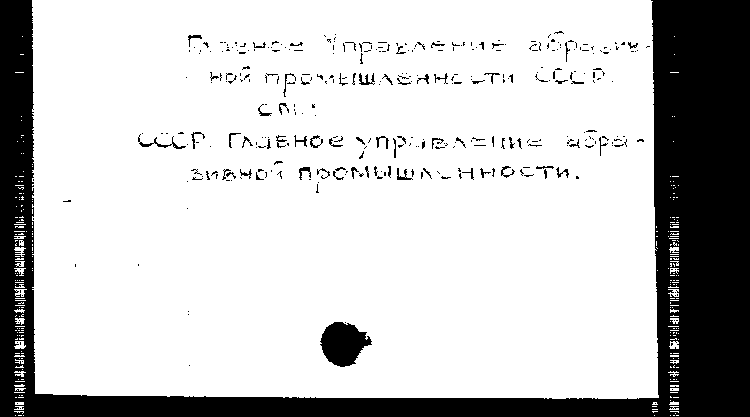 Главное Управление абразив-
ной промышленности СССР.
см.:
СССР. Главное управление абра-
зивной промышленности.